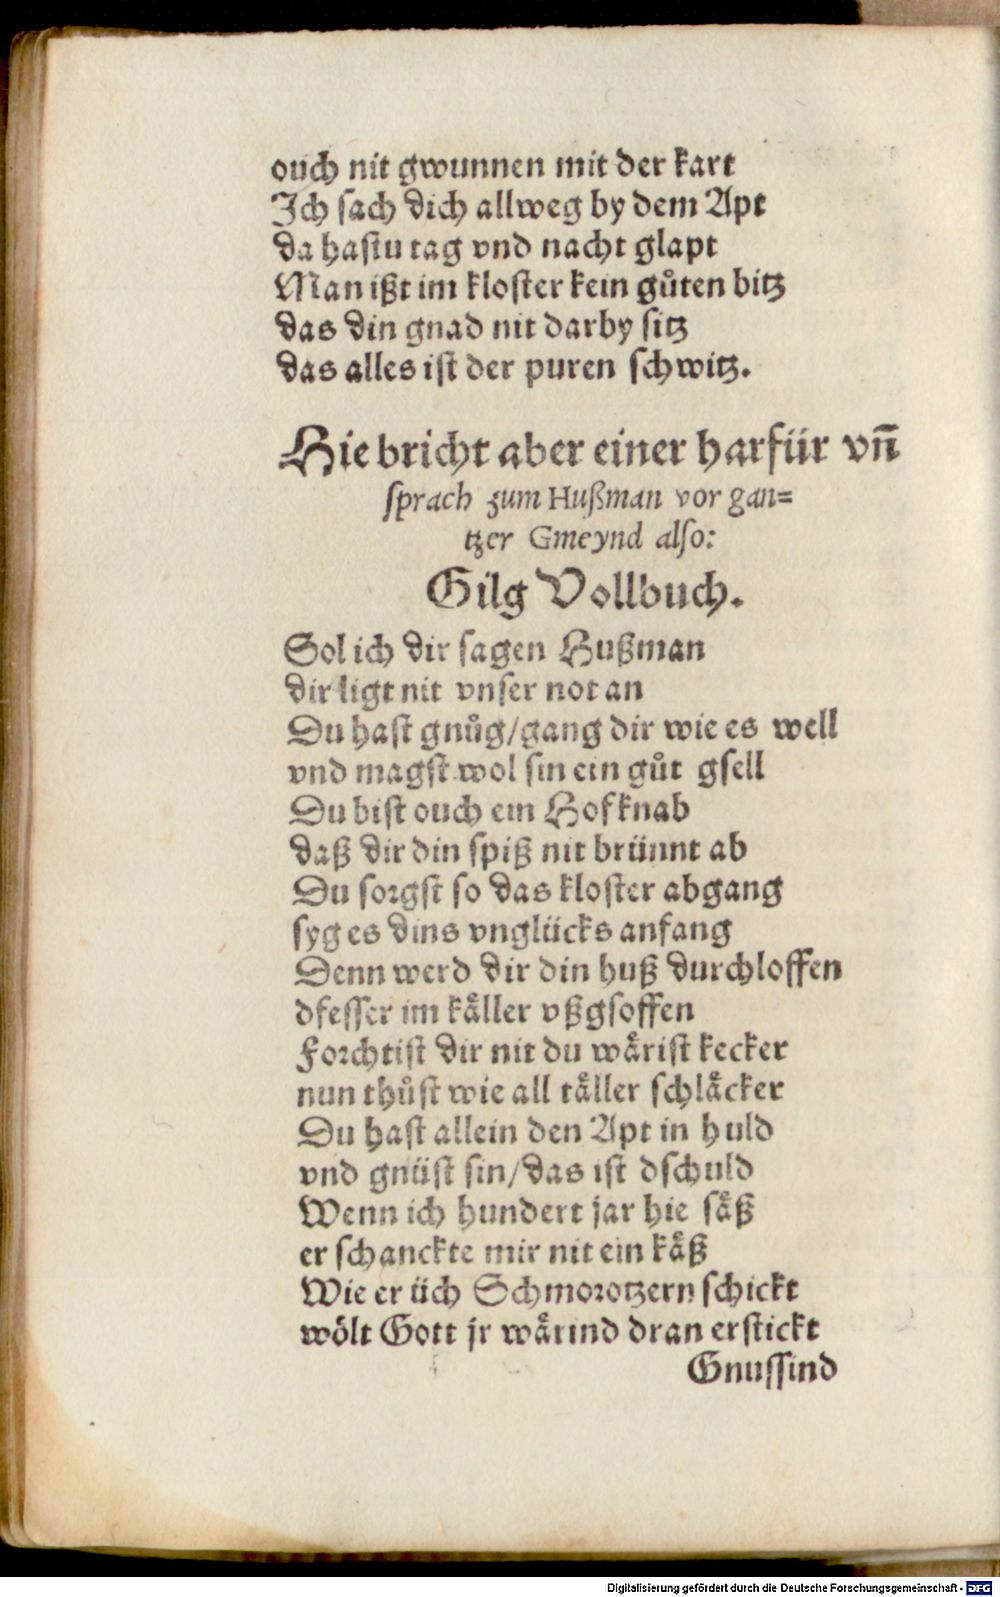 ouch nit gwunnen mit der kart
Ich sach dich allweg by dem Apt
da hastu tag vnd nacht glapt
Man ißt im kloster kein gůten bitz
das din gnad nit darby sitz
das alles ist der puren schwitz.
Hie bricht aber einer harfür vn̄
sprach zum Hußman vor gan=
tzer Gmeynd also:
Gilg Vollbuch.
Sol ich dir sagen Hußman
dir ligt nit vnser not an
Du hast gnůg/gang dir wie es well
vnd magst wol sin ein gůt gsell
Du bist ouch ein Hofknab
daß dir din spiß nit brünnt ab
Du sorgst so das kloster abgang
syg es dins vnglücks anfang
Denn werd dir din huß durchloffen
dfesser im kåller vßgsoffen
Forchtist dir nit du wårist kecker
nun thůst wie all tåller schlåcker
Du hast allein den Apt in huld
vnd gnüst sin/das ist dschuld
Wenn ich hundert jar hie såß
er schanckte mir nit ein kåß
Wie er üch Schmorotzern schickt
wölt Gott jr wårind dran erstickt
Gnussind
Digitalisierung gefördert durch die Deutsche Forschungsgemeinschaft - DFG